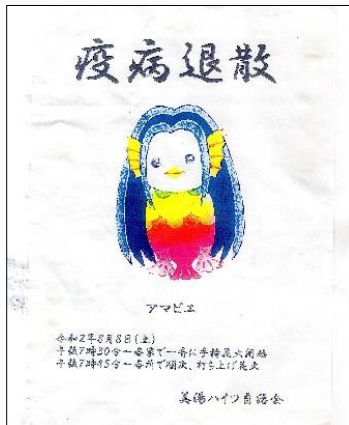 疫病退散
アマビエ
令和2年8月8日(土)
午後7時30分~各家で一斉に手持花火開始
午後7時45分~各所で順次、打ち上げ花火
美陽ハイツ自治会